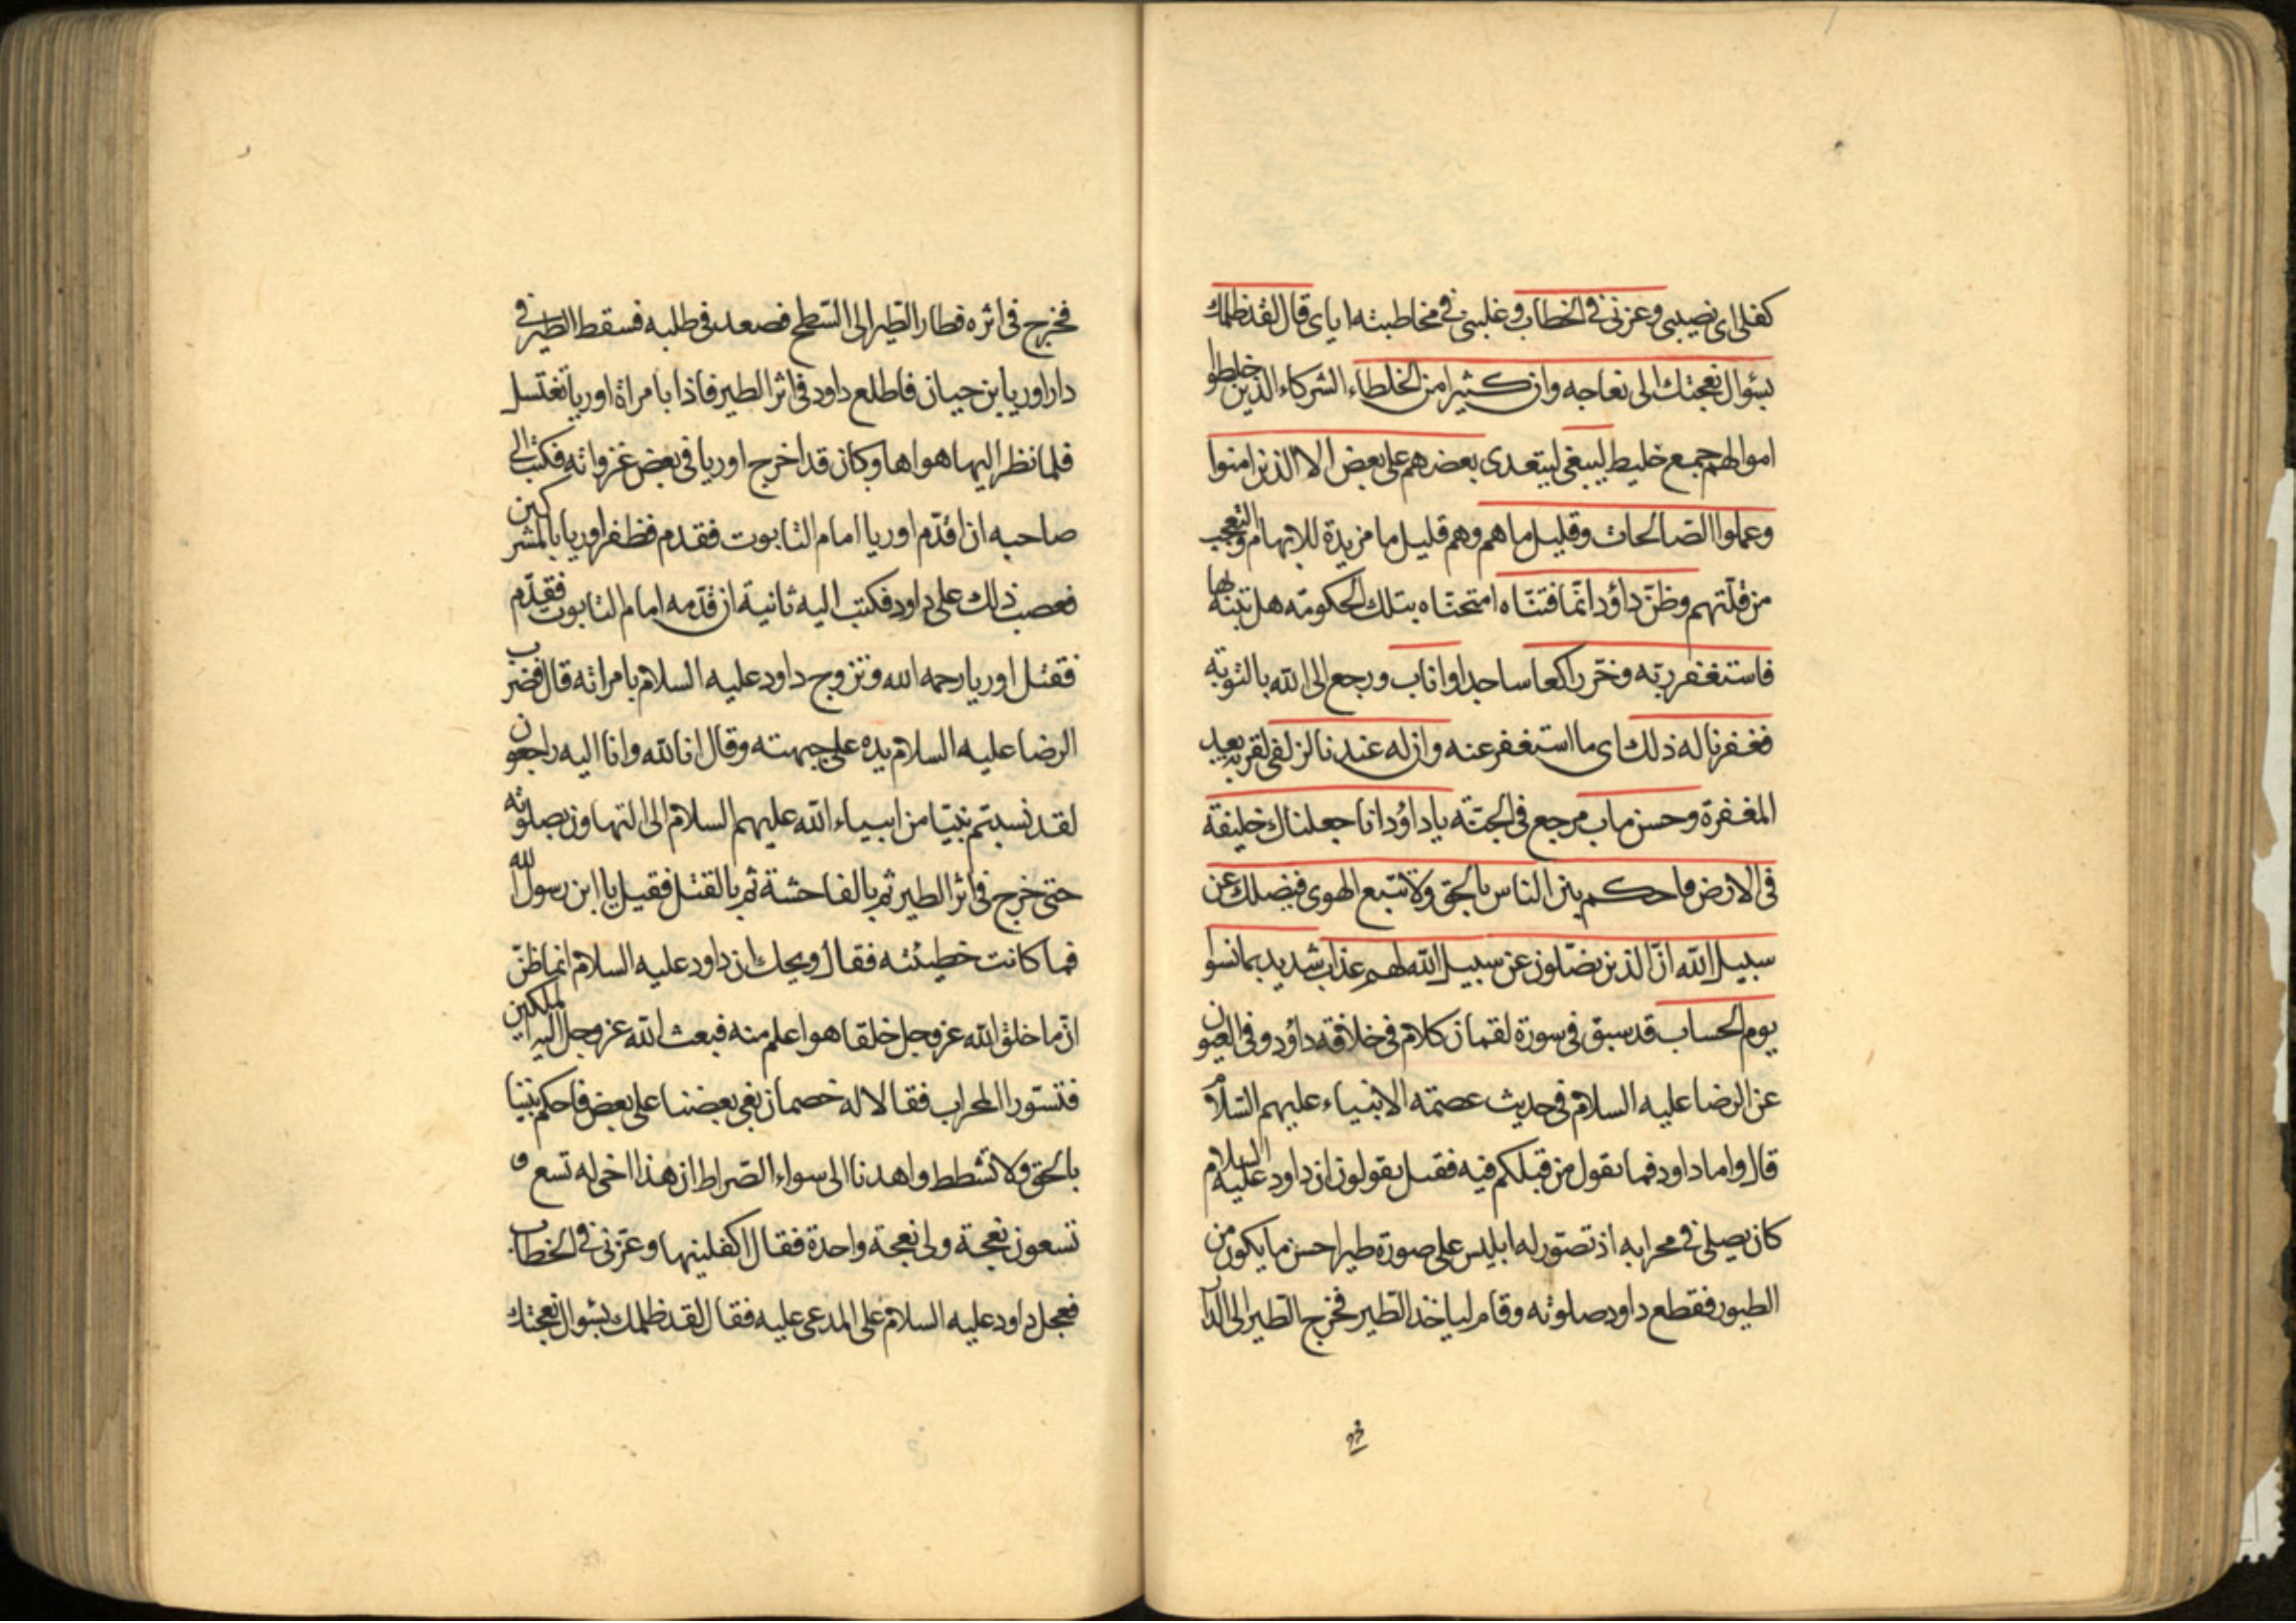 كفلى اى نصيبى وعزنى فى الخطاب وغلبنى فى مخاطبته اياى قال لقد ظلمك
بسؤال نعجتك الى نعاجه وان كثيرا من الخلطاء الشركاء الذين خلطوا
اموالهم جمع خليط ليبغى ليتعدى بعضهم على بعض الا الذين امنوا
وعملوا الصالحات وقليل ما هم وهم قليل ما مزيدة للابهام والتعجب
من قلتهم وظنّ داؤد انّما فتنّاه امتحنّاه بتلك الحكومة هل تنبه بها
فاستغفر ربّه وخرّ راكعا ساجدا واناب ورجع الى الله بالتوبة
فغفرنا له ذلك اى ما استغفر عنه وان له عندنا لزلفى لقربة بعد
المغفرة وحسن ماب مرجع فى الجنّة ياداؤد انا جعلناك خليفة
فى الارض فاحكم بين الناس بالحق ولا تتبع الهوى فيضلك عن
سبيل الله انّ الذين يضلون عن سبيل الله لهم عذاب شديد بما نسوا
يوم الحساب قد سبق فى سورة لقمان كلام فى خلافة داؤد وفى العيون
عن الرضا عليه السلام فى حديث عصمة الانبياء عليهم السّلام
قال واما داود فما يقول من قبلكم فيه فقيل يقولون ان داود عليه السلام
كان يصلى فى محرابه اذ تصوّر له ابليس على صورة طير احسن ما يكون من
الطيور فقطع داود صلوته وقام لياخذ الطير فخرج الطير الى الدار
فخرج
فخرج فى اثره فطار الطير الى السّطح فصعد فى طلبه فسقط الطير فى
دار اوريا بن حيان فاطلع داود فى اثر الطير فاذا بامراة اوريا تغتسل
فلما نظر اليها هواها وكان قد اخرج اوريا فى بعض غزواته فكتب الى
صاحبه ان اقدّم اوريا امام التابوت فقدم فظفر اوريا بالمشركين
فصعب ذلك على داود فكتب اليه ثانية ان قدّمه امام التابوت فقدّم
فقتل اوريا رحمه الله وتزوج داود عليه السلام بامراته قال فضرب
الرضا عليه السلام يده على جبهته وقال انا لله وانا اليه راجعون
لقد نسبتم نبيّا من انبياء الله عليهم السلام الى التهاون بصلوته
حتى خرج فى اثر الطير ثم بالفاحشة ثم بالقتل فقيل يا ابن رسول الله
فما كانت خطيئته فقال ويحك ان داود عليه السلام انما ظنّ
ان ما خلق الله عز وجل خلقا هو اعلم منه فبعث الله عز وجل اليه الملكين
فتسوّرا المحراب فقالا له خصمان بغى بعضنا على بعض فاحكم بيننا
بالحق ولا تشطط واهدنا الى سواء الصّراط ان هذا اخى له تسع و
تسعون نعجة ولى نعجة واحدة فقال اكفلنيها وعزّنى فى الخطاب
فعجل داود عليه السلام على المدعى عليه فقال لقد ظلمك بسؤال نعجتك